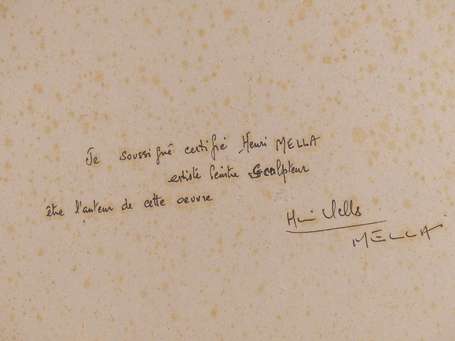 Je soussigné certifié Henri MELLA
artiste Peintre Sculpteur
être l'auteur de cette oeuvre
Henri Mella
MELLA